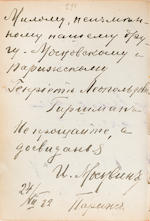 Милому, неизмен-
ному нашему дру-
гу - Московскому и
Парижскому
Генриетте Леопольдовне
Гиршман.
Не прощайте, а
досвиданья
И. Москвин
24/XII 22
Париж